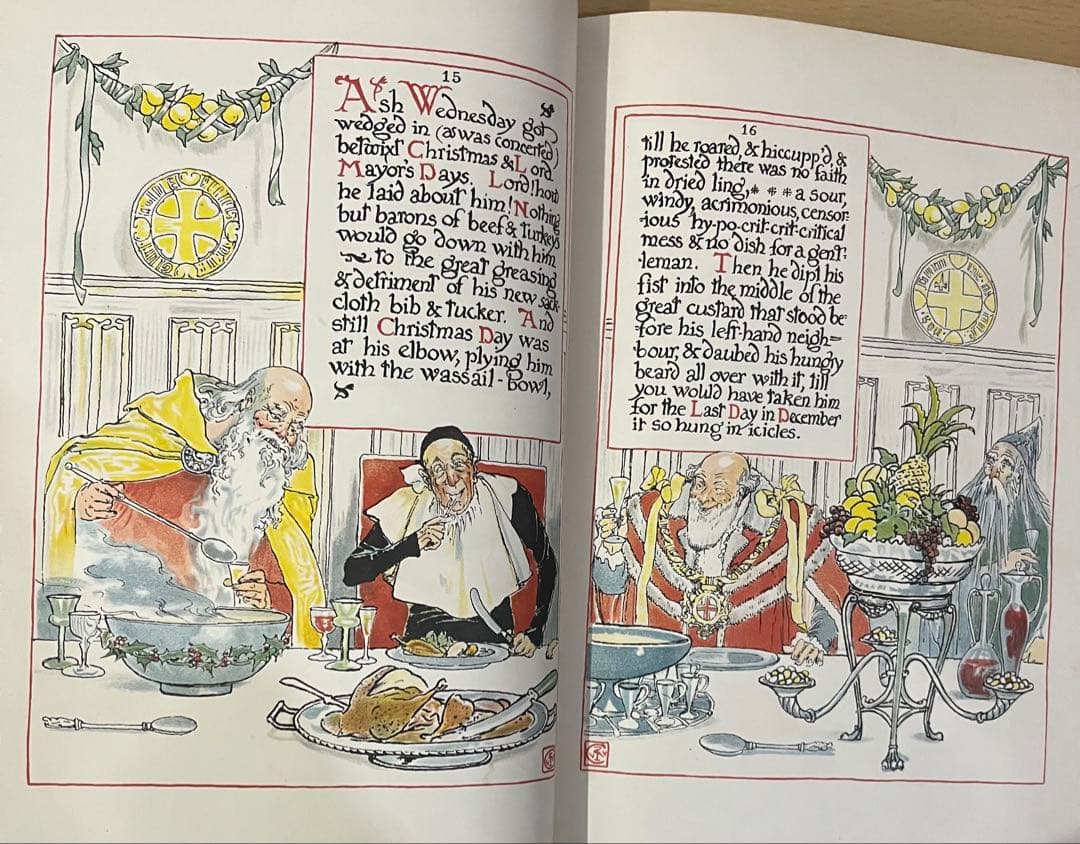 15
Ash Wednesday got
wedged in (as was concerted)
betwixt Christmas & Lord
Mayor's Days. Lord! how
he laid about him! Nothing
but barons of beef & turkeys
would go down with him
to the great greasing
& detriment of his new sack-
cloth bib & tucker. And
still Christmas Day was
at his elbow, plying him
with the wassail-bowl,
16
till he roared & hiccupp'd &
protested there was no faith
in dried ling, * * * a sour,
windy, acrimonious, censor-
ious hy-po-crit-crit-critical
mess & no dish for a gent-
leman. Then he dipt his
fist into the middle of the
great custard that stood be-
fore his left-hand neigh=
bour, & daubed his hungry
beard all over with it, till
you would have taken him
for the Last Day in December
it so hung in icicles.